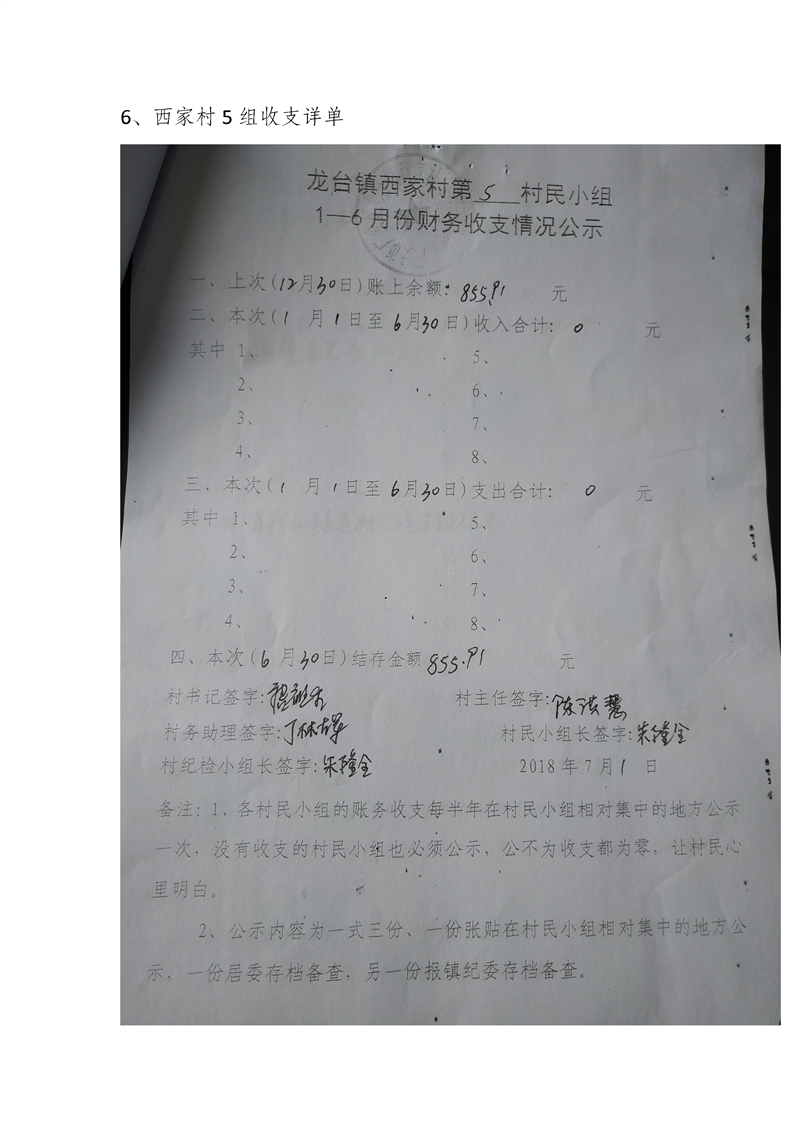 6、西家村 5 组收支详单
龙台镇西家村第 5 村民小组
1—6 月份财务收支情况公示
一、上次(12月30日)账上余额: 855.91 元
二、本次(1 月1日至 6月30日)收入合计: 0 元
其中 1、 5、
2、 6、
3、 7、
4、 8、
三、本次(1 月1日至 6月30日)支出合计: 0 元
其中 1、 5、
2、 6、
3、 7、
4、 8、
四、本次(6 月30日)结存金额 855.91 元
村书记签字: 村主任签字:陈洪慧
村务助理签字: 村民小组长签字:
村纪检小组长签字: 2018 年 7月1 日
备注: 1、各村民小组的账务收支每半年在村民小组相对集中的地方公示
一次，没有收支的村民小组也必须公示，公不为收支都为零，让村民心
里明白。
2、公示内容为一式三份、一份张贴在村民小组相对集中的地方公
示，一份居委存档备查，另一份报镇纪委存档备查。